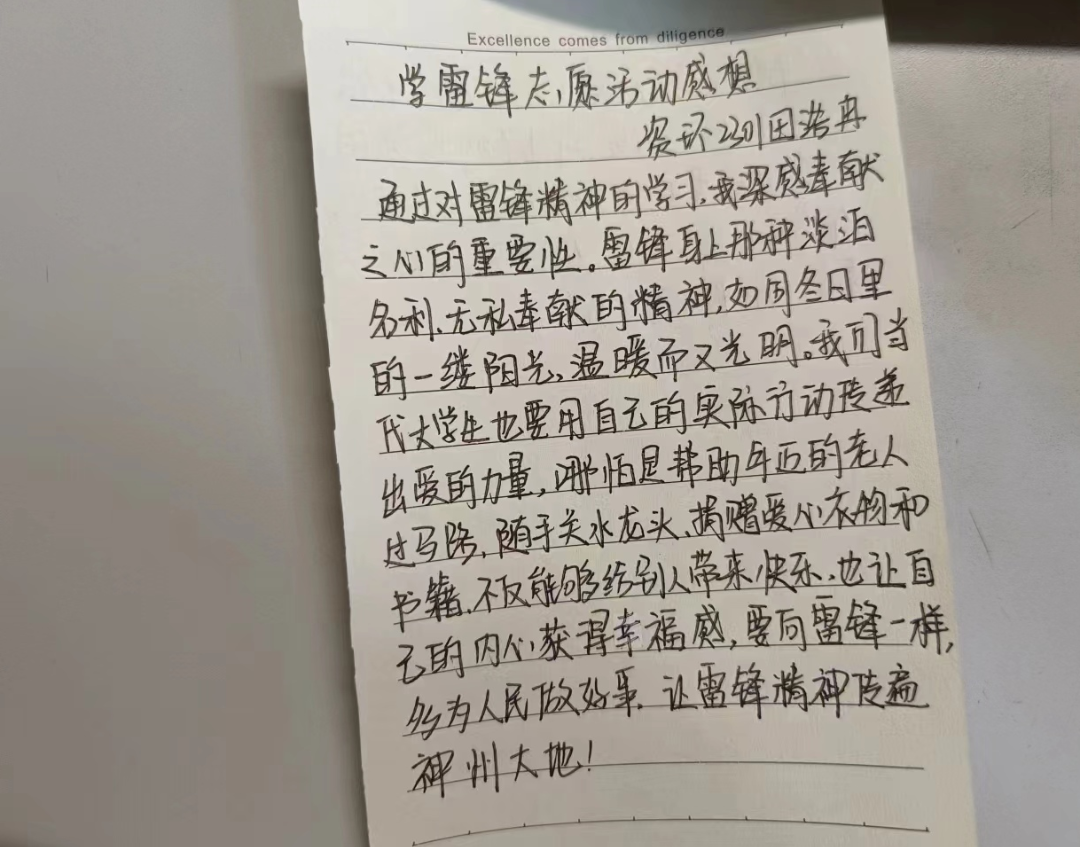 Excellence comes from diligence
学雷锋志愿活动感想
资环2301田浩冉
通过对雷锋精神的学习,我深感奉献
之心的重要性。雷锋身上那种淡泊
名利、无私奉献的精神,如同冬日里
的一缕阳光,温暖而又光明。我们当
代大学生也要用自己的实际行动传递
出爱的力量,哪怕是帮助年迈的老人
过马路,随手关水龙头、捐赠爱心衣物和
书籍,不仅能够给别人带来快乐,也让自
己的内心获得幸福感,要向雷锋一样,
多为人民做好事,让雷锋精神传遍
神州大地!